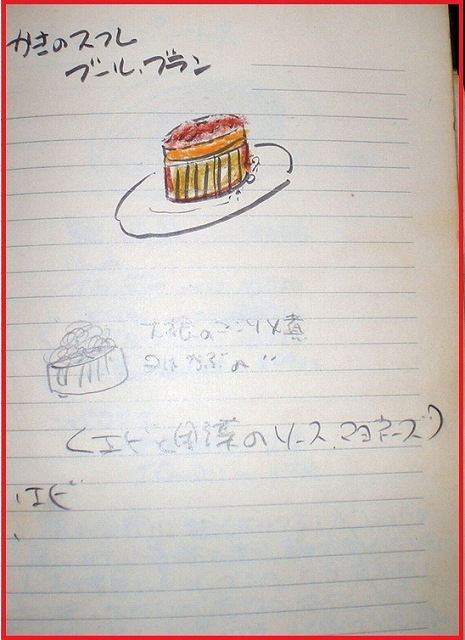 かきのスフレ
ブール、ブラン
大根のコンソメ煮
又はかぶの 〃
(エビと白菜のソース、マヨネーズ)
エビ